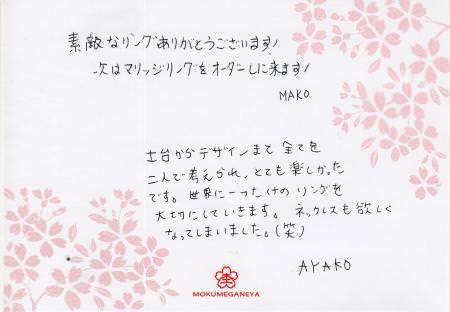 素敵なリングありがとうございます!
次はマリッジリングをオーダーしに来ます!
MAKO
土台からデザインまで 全てを
二人で考えられ、とても楽しかった
です。世界に一つだけの リングを
大切にしていきます。ネックレスも欲しく
なってしまいました。(笑)
AYAKO
MOKUMEGANEYA